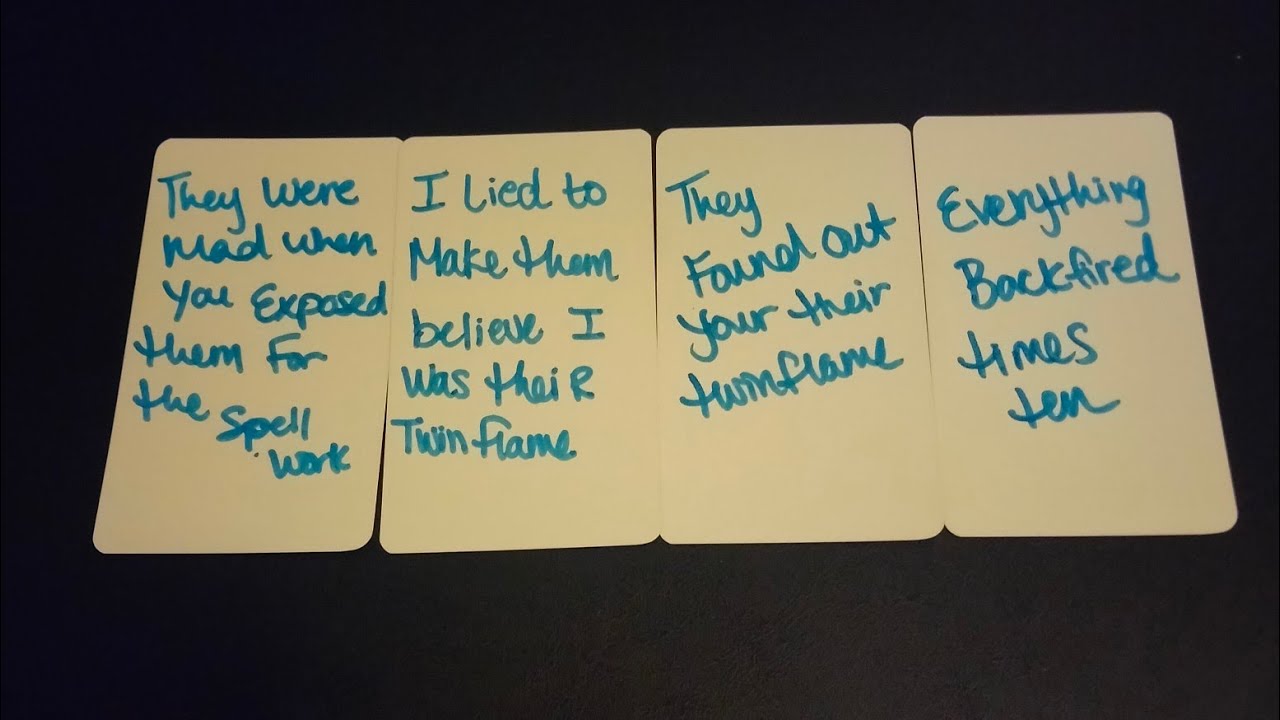 They were
Mad when
you Exposed
them For
the Spell
work
I Lied to
Make them
believe I
was theiR
Twin flame
They
Found out
your their
twinflame
Everything
Backfired
times
ten